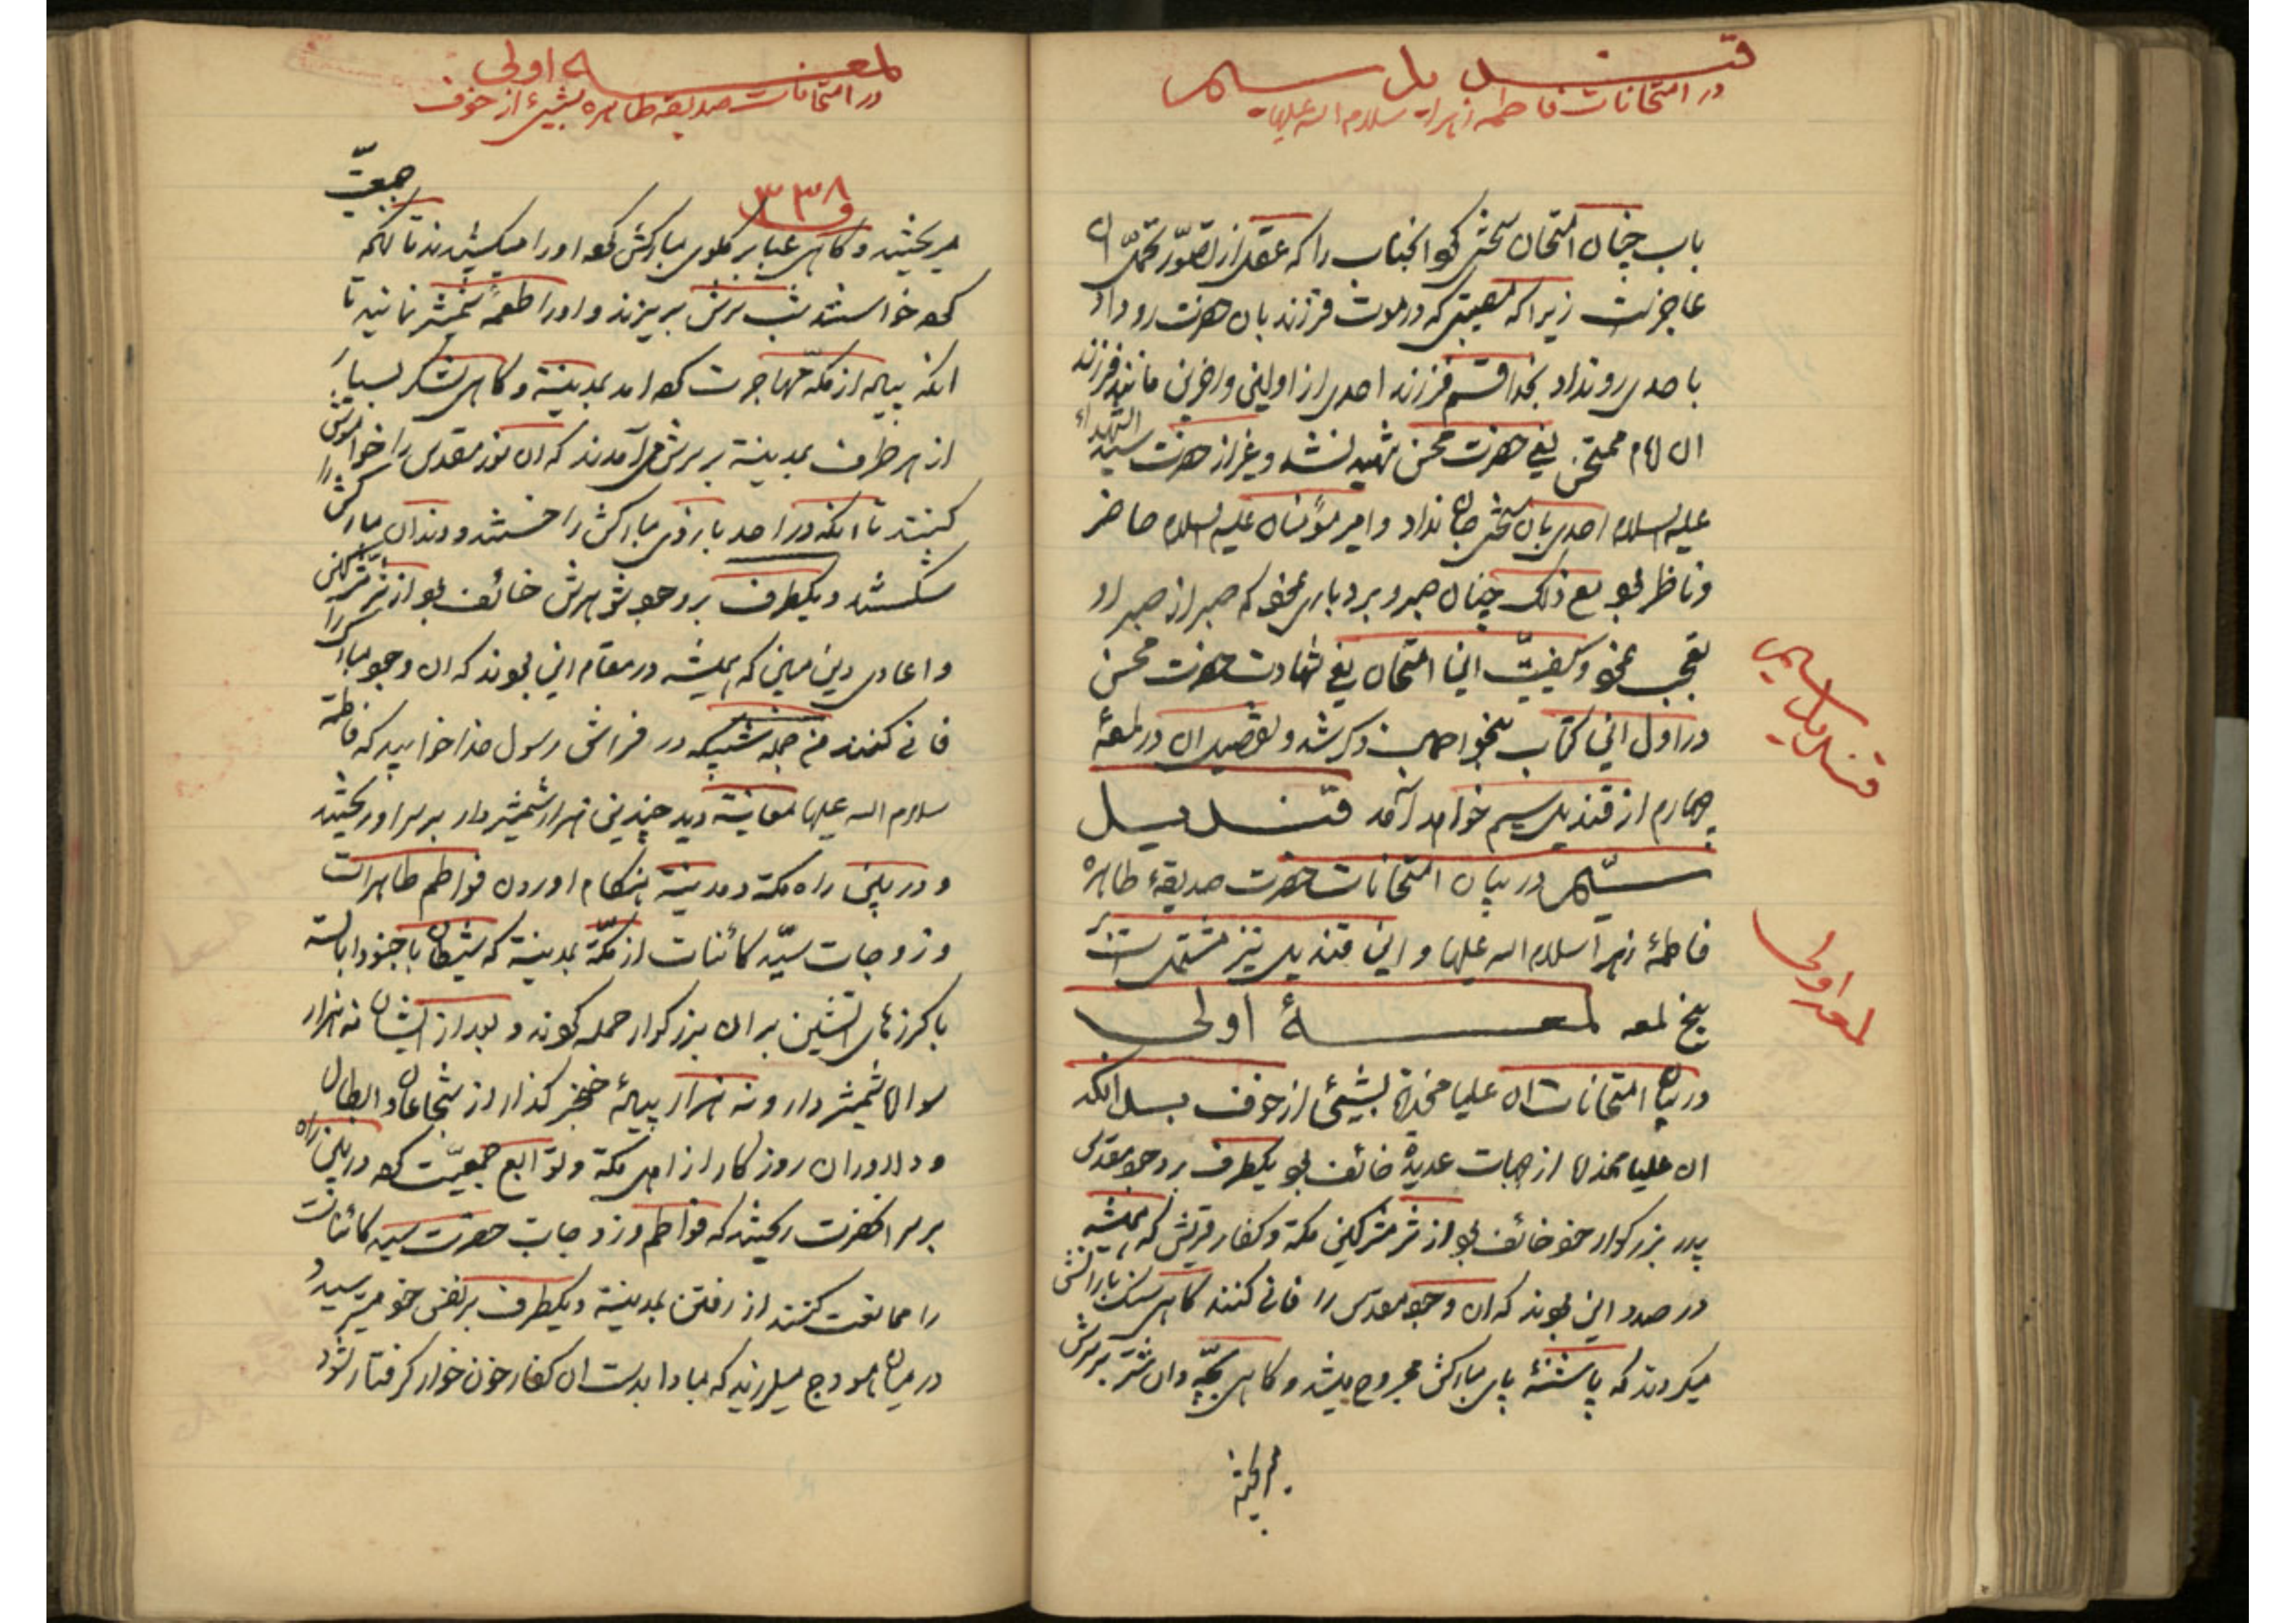 قندیل سیم
در امتحانات فاطمه زهراء سلام الله علیها
باب چنان امتحان سختی کرد انجناب را که عقل از تصور و تحمل ان
عاجز است زیرا که مصیبتی که در موت فرزند بان حضرت رو داد
با حدی رو نداد بخدا قسم فرزند احدی از اولین و اخرین مانند فرزند
ان امام ممتحن یعنی حضرت محسن شهید نشد و غیر از حضرت سید الشهداء
علیه السلام احدی بان سختی جان نداد و امیر مؤمنان علیه السلام حاضر
و ناظر بود مع ذلک چنان صبر و بردباری نمود که صبر از صبر او
تعجب نمود و کیفیت این امتحان یعنی شهادت حضرت محسن
در اول این کتاب بنحو اجمال ذکر شد و تفصیل ان در لمعهٔ
چهارم از قندیل سیم خواهد آمد قندیل
سیم در بیان امتحانات حضرت صدیقهٔ طاهره
فاطمهٔ زهرا سلام الله علیها و این قندیل نیز مشتمل است بر
پنج لمعه لمعهٔ اولی
در بیان امتحانات ان علیا مخدره بشیئی از خوف بدانکه
ان علیا مخدره از جهات عدیده خائف بود یکطرف بر وجود مقدس
پدر بزرگوار خود خائف بود از شر مشرکین مکه و کفار قریش که همیشه
در صدد این بودند که ان وجود مقدس را فانی کنند گاهی سنک بارانش
میکردند که پاشنهٔ پای مبارکش مجروح میشد و گاهی بچه دان شتر بر سرش
میریختند
قندیل سیم
لمعه اولی
لمعه اولی
در امتحانات صدیقه طاهره بشیئ از خوف
۳۳۸
میریختند و گاهی عبا بر گلوی مبارکش کرده او را میکشیدند تا انکه
جمعیت
کرده خواستند شب بر سرش بریزند و او را طعمهٔ شمشیر نمایند تا
انکه پیاده از مکه مهاجرت کرده امد بمدینه و گاهی لشکر بسیار
از هر طرف بمدینه بر سرش می آمدند که ان نور مقدس را خواموش
کنند تا انکه در احد بازوی مبارکش را خستند و دندان مبارکش را
شکستند و یکطرف بر وجود شوهرش خائف بود از شر مشرکین
و اعادی دین مبین که همیشه در مقام این بودند که ان وجود مبارک را
فانی کنند من جمله شبیکه در فراش رسول خدا خوابید که فاطمه
سلام الله علیها معاینه دید چندین هزار شمشیر دار بر سر او ریختند
و در بین راه مکه و مدینه هنکام اوردن فواطم طاهرات
و زوجات سید کائنات از مکه بمدینه که شیطان با جنود ابالسه
با گرزهای اتشین بر ان بزرگوار حمله کردند و بعد از ایشان نه هزار
سواره شمشیر دار و نه هزار پیادهٔ خنجر گذار از شجاعان و ابطال
و دلاوران روزگار از اهل مکه و توابع جمعیت کرده در بین راه
بر سر انحضرت ریختند که فواطم و زوجات حضرت سید کائنات
را ممانعت کنند از رفتن بمدینه و یکطرف بر نفس خود میترسید و
در میان هودج میلرزید که مبادا بدست ان کفار خون خوار گرفتار شود